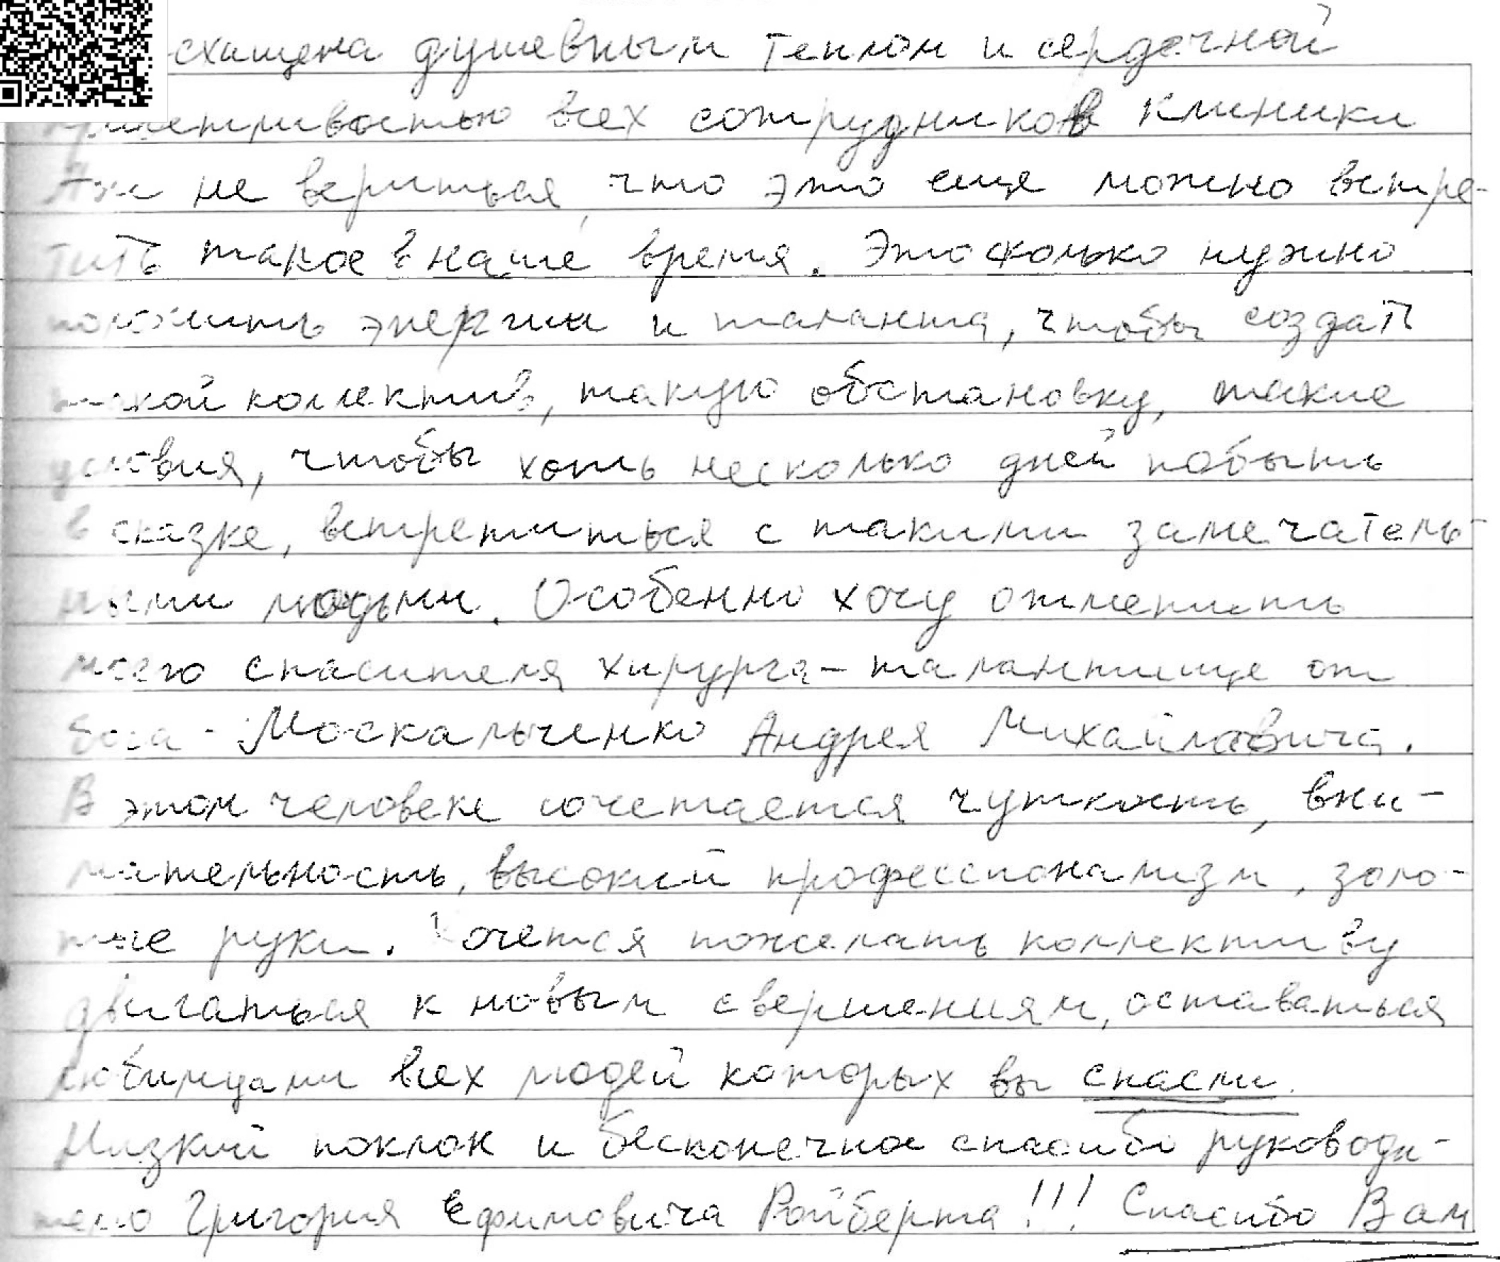 -схищена душевным теплом и сердечной
приветливостью всех сотрудников клиники
Аж не вериться, что это еще можно встре-
тить такое в наше время. Это сколько нужно
положить энергии и таланта, чтобы создать
такой коллектив, такую обстановку, такие
условия, чтобы хоть несколько дней побыть
в сказке, встретиться с такими замечатель-
ными людьми. Особенно хочу отметить
моего спасителя хирурга-талантище от
бога - Москальченко Андрея Михайловича.
В этом человеке сочетается чуткость, вни-
мательность, высокий профессионализм, золо-
тые руки. Хочется пожелать коллективу
двигаться к новым свершениям, оставаться
любимцами всех людей которых вы спасли.
Низкий поклон и бесконечное спасибо руководи-
телю Григория Ефимовича Ройберта!!! Спасибо Вам